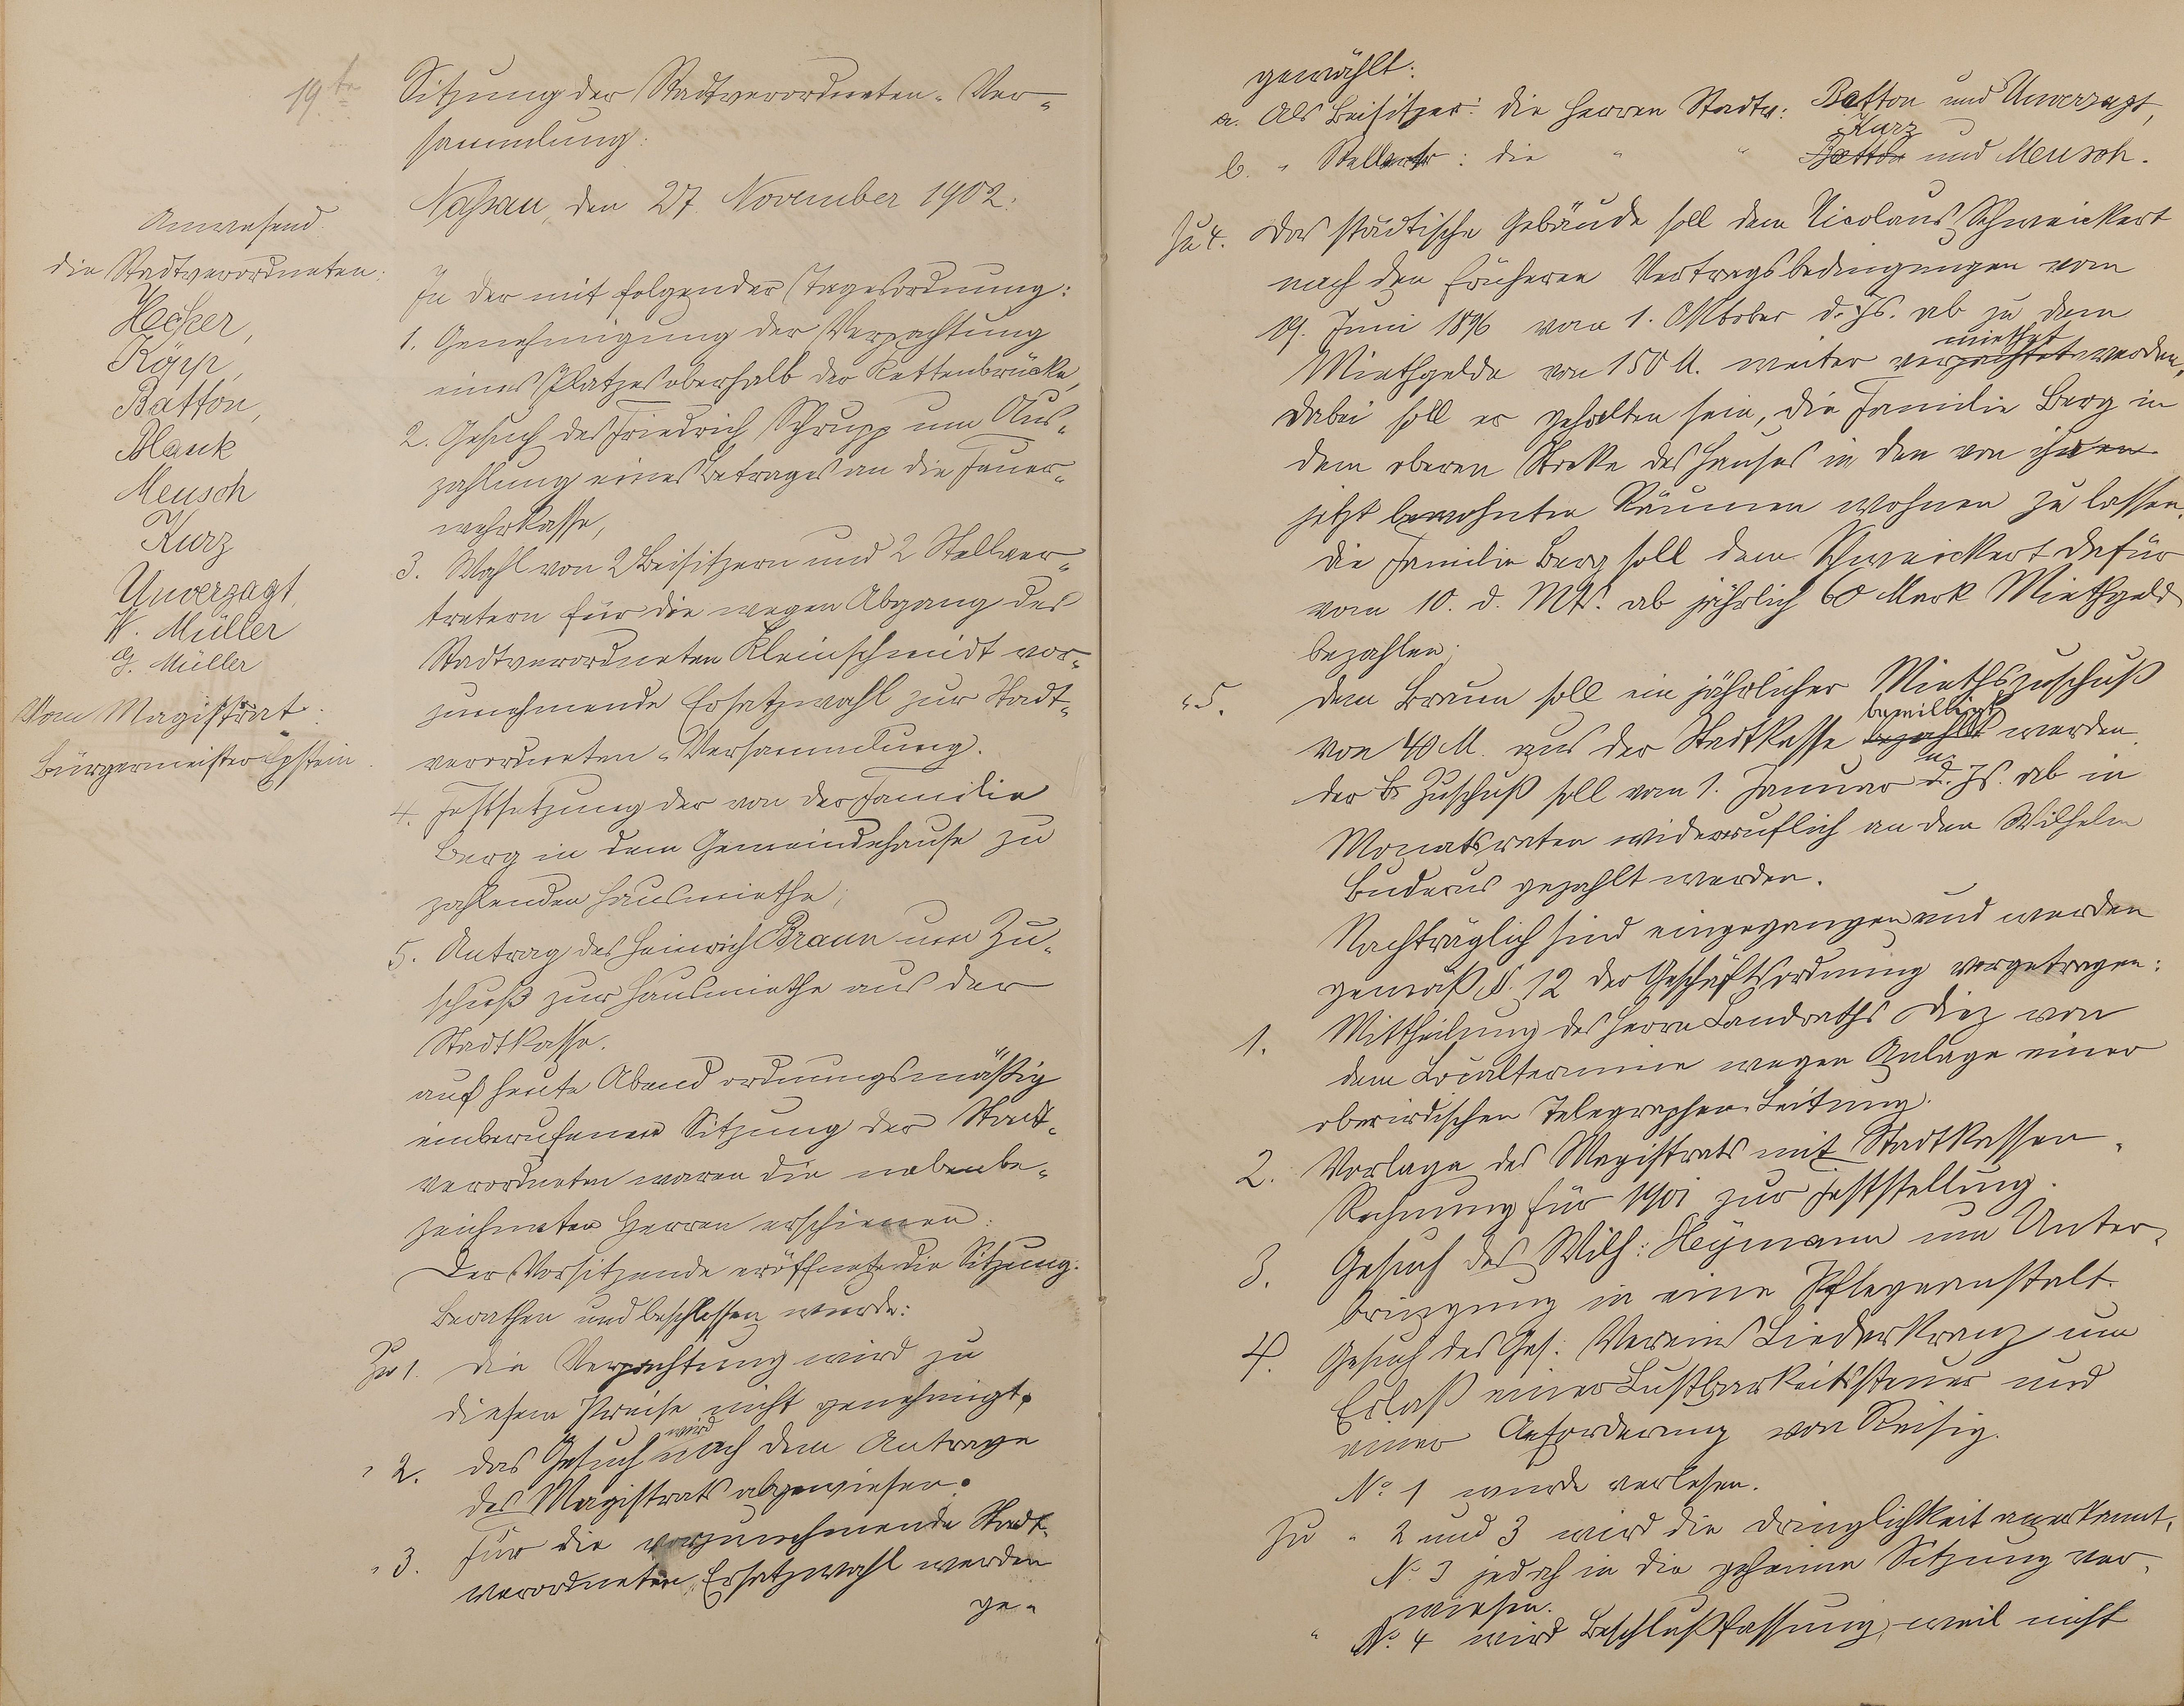 19te
Sitzung der Stadtverordneten-Ver-
sammlung.
Nassau, den 27. November 1902.
Anwesend:
die Stadtverordneten:
Hecker,
Köpp,
Batton,
Blank
Meusch
Kurz
Unverzagt,
W. Müller
G. Müller
Vom Magistrat:
Bürgermeister Epstein.
In der mit folgender Tagesordnung:
1. Genehmigung der Verpachtung
eines Platzes oberhalb der Kettenbrücke,
2. Gesuch des Friedrich Schrupp um Aus-
zahlung eines Betrages an die Feuer-
wehrkasse,
3. Wahl von 2 Beisitzern und 2 Stellver-
tretern für die wegen Abgang des
Stadtverordneten Kleinschmidt vor-
zunehmende Ersatzwahl zur Stadt-
verordneten-Versammlung.
4. Festsetzung der von der Familie
Berg in dem Gemeindehause zu
zahlenden Hausmiethe,
5. Antrag des Heinrich Braun um Zu-
schuß zur Hausmiethe aus der
Stadtkasse.
auf heute Abend ordnungsmäßig
einberufenen Sitzung der Stadt-
verordneten waren die nebenbe-
zeichneten Herren erschienen.
Der Vorsitzende eröffnete die Sitzung.
Berathen und beschlossen wurde:
Zu 1. Die Verpachtung wird zu
diesem Preise nicht genehmigt.
" 2. das Gesuch wird nach dem Antrage
des Magistrats abgewiesen.
" 3. Für die vorzunehmende Stadt-
verordneten Ersatzwahl werden
ge-
gewählt:
a. Als Beisitzer: die Herren Stadtv: Batton und Unverzagt,
b. " Stellvertr: die " " Kurz
Batton und Meusch.
Zu 4. Das städtische Gebäude soll dem Nicolaus Schweickert
nach den früheren Vertragsbedingungen vom
19. Juni 1896 vom 1. Oktober d. Js. ab zu dem
Miethgelde von 150 M. weiter verpachtet miethet werden,
dabei soll er gehalten sein, die Familie Berg in
dem oberen Stocke des Hauses in den von ihnen
jetzt bewohnten Räumen wohnen zu lassen.
die Familie Berg soll dem Schweickert dafür
vom 10. d. Mts. ab jährlich 60 Mark Miethgeld
bezahlen.
" 5. dem Braun soll ein jährlicher Miethszuschuß
von 40 M. aus der Stadtkasse bezahlt bewilligt werden.
der B. Zuschuß soll vom 1. Januar d. n. Js. ab in
Monatsraten widerruflich an den Wilhelm
Buderus gezahlt werden.
Nachträglich sind eingegangen und werden
gemäß § 12 der Geschäftsordnung vorgetragen:
1. Mittheilung des Herrn Landraths Diez von
dem Localtermine wegen Anlage einer
oberirdischen Telegraphen-Leitung.
2. Vorlage des Magistrats mit Stadtkassen-
Rechnung für 1901 zur Feststellung.
3. Gesuch des Wilh: Heymann um Unter-
bringung in eine Pflegeanstalt.
4. Gesuch des Ges: Vereins Liederkranz um
Erlaß einer Lustbarkeitssteuer und
einer Anforderung von Reisig.
No 1 wurde verlesen.
Zu " 2 und 3 wird die Dringlichkeit anerkannt,
No 3 jedoch in die geheime Sitzung ver-
wiesen.
" No 4 wird Beschlußfassung, weil nicht